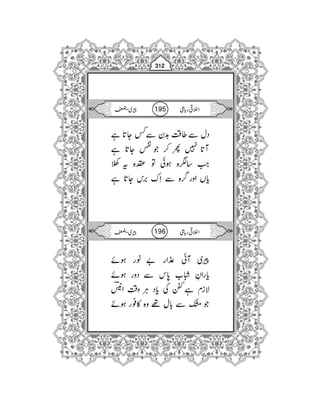 312
اخلاقی رباعی 195 پیری و ضعف
دل سے طاقت بدن سے کس جاتا ہے
آتا نہیں پھر کر جو نفس جاتا ہے
جب سالگرہ ہوئی تو عقدہ یہ کھلا
یاں اور گرہ سے اِک برس جاتا ہے
اخلاقی رباعی 196 پیری و ضعف
پیری آئی عذار بے نور ہوئے
یارانِ شباب پاس سے دور ہوئے
لازم ہے کفن کی یاد ہر وقت انیسؔ
جو مشک سے بال تھے وہ کافور ہوئے